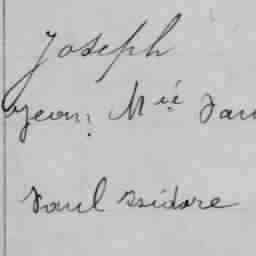 Joseph
Jean Mie
Paul Isidore